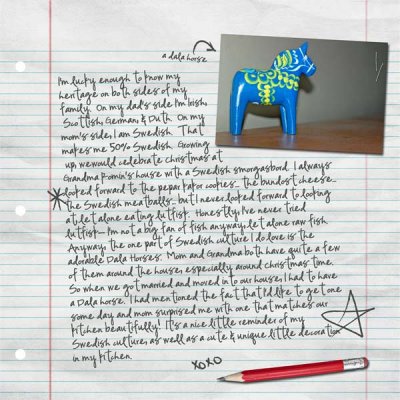 a dala horse
I'm lucky enough to know my
heritage on both sides of my
family. On my dad's side I'm Irish,
Scottish, German, & Duth. On my
mom's side, I am Swedish. That
makes me 50% Swedish. Growing
up, we would celebrate Christmas at
Grandma Fomin's house with a Swedish smorgasbord. I always
looked forward to the pepar kakor cookies... the bundost cheese...
the Swedish meatballs... but I never looked forward to looking
at, let alone eating lutfisk. Honestly, I've never tried
lutfisk... I'm not a big fan of fish anyway, let alone raw fish.
Anyway, the one part of Swedish culture I do love is the
adorable Dala Horses. Mom and Grandma both have quite a few
of them around the house, especially around Christmas time.
So when we got married and moved in to our house, I had to have
a Dala horse. I had mentioned the fact that I'd like to get one
some day and mom surprised me with one that matches our
kitchen beautifully! It's a nice little reminder of my
Swedish culture, as well as a cute & unique little decoration
in my kitchen.
xoxo